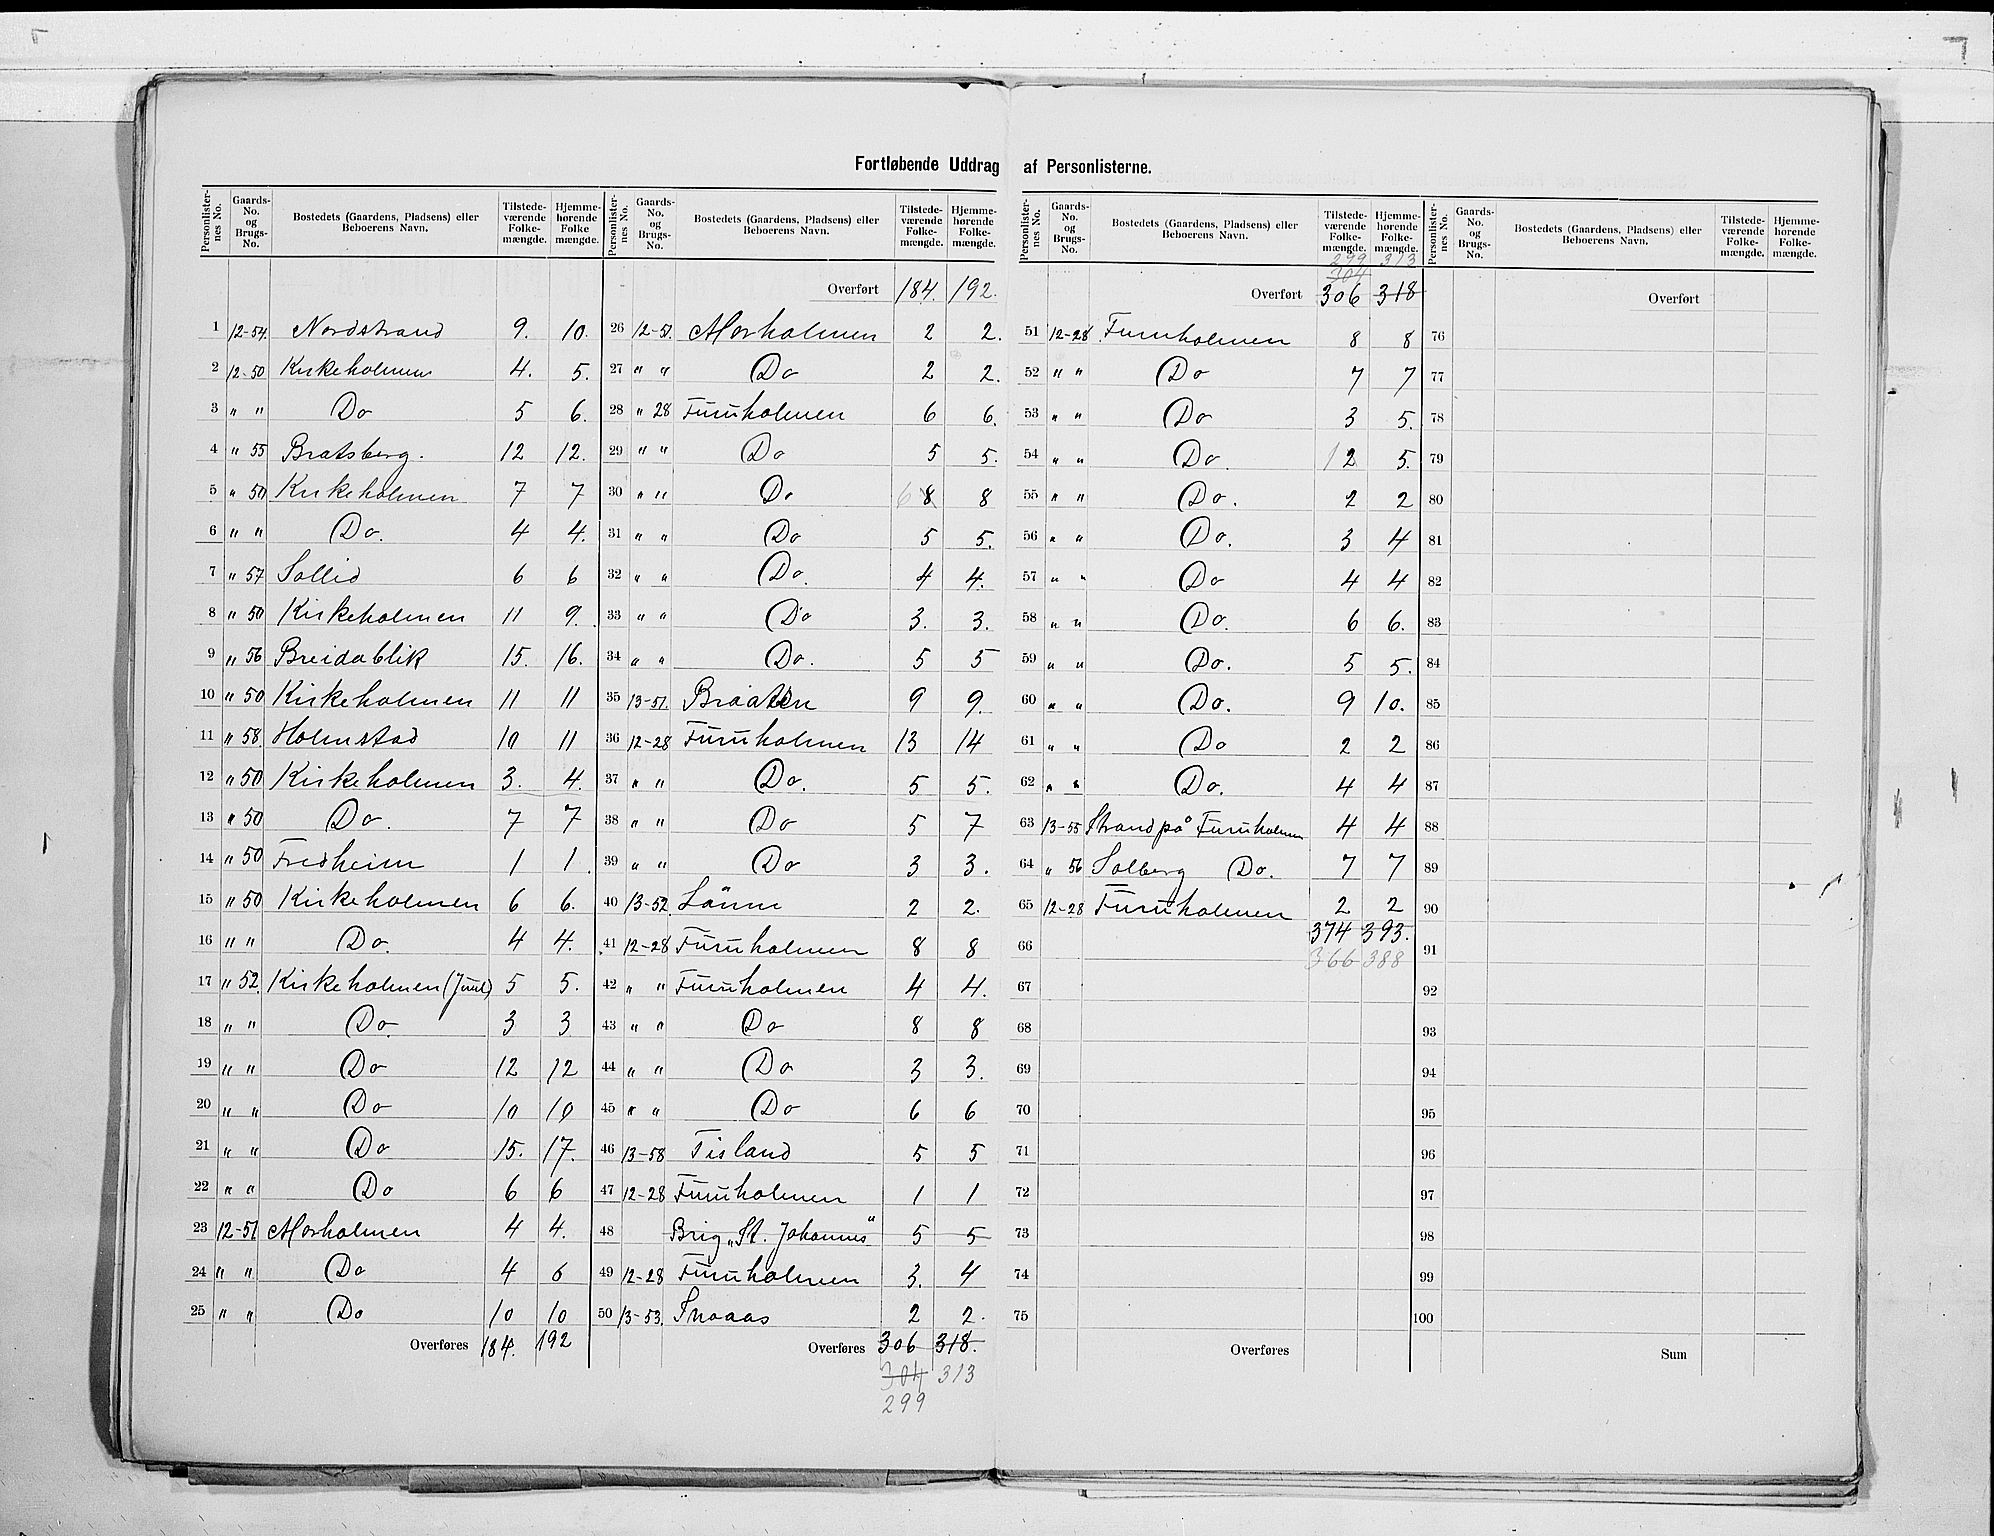 Fortløbende Uddrag af Personlisterne.
Personlister-nes No. | Gaards-No. og Brugs-No. | Bostedets (Gaardens, Pladsens) eller Beboerens Navn. | Tilstede-værende Folke-mængde. | Hjemme-hørende Folke mængde.
1 12-54. Nordstrand 9. 10.
2 12-50 Kirkeholmen 4. 5.
3 " " Do 5 6.
4 " 55 Bratsberg. 12 12.
5 " 50 Kirkeholmen 7 7
6 " " Do. 4 4.
7 " 57 Sollid 6 6
8 " 50 Kirkeholmen 11 9.
9 " 56 Breidablik 15. 16.
10 " 50 Kirkeholmen 11 11
11 " 58. Holmstad 10 11
12 " 50 Kirkeholmen 3. 4.
13 " 50 Do. 7 7
14 " 50 Fredheim 1 1.
15 " 50 Kirkeholmen 6 6.
16 " " Do. 4 4.
17 " 52. Kirkeholmen (Juul) 5 5.
18 " " Do. 3 3
19 " " Do 12 12
20 " " Do 10 10
21 " " Do 15. 17.
22 " " Do 6 6
23 12-51 Morholmen 4 4.
24 " " Do 4 6
25 " " Do 10 10
Overføres 184. 192
Personlister-nes No. | Gaards-No. og Brugs-No. | Bostedets (Gaardens, Pladsens) eller Beboerens Navn. | Tilstede-værende Folke-mængde. | Hjemme-hørende Folke-mængde.
Overført 184. 192.
26 12-51. Morholmen 2 2.
27 " " Do 2 2.
28 " 28 Furuholmen 6 6.
29 " " Do 5 5.
30 " " Do 6 8 8
31 " " Do 5 5.
32 " " Do. 4 4.
33 " " Do 3. 3.
34 " " Do. 5 5
35 13-51. Braaten 9 9.
36 12-28 Furuholmen 13 14
37 " " Do. 5 5.
38 " " Do 5 7
39 " " Do 3 3.
40 13-52. 2 2.
41 12-28 Furuholmen 8 8
42 " " Furuholmen 4 4.
43 " " Do 8 8
44 " " Do 3 3.
45 " " Do 6 6
46 13-58 Tisland 5 5
47 12-28 Furuholmen 1 1
48 Brig „St. Johannes" 5 5
49 12-28 Furuholmen 3. 4
50 13-53. Snaaas 2 2.
Overføres 306 318.
304 313
299
Personlister-nes No. | Gaards-No. og Brugs-No. | Bostedets (Gaardens, Pladsens) eller Beboerens Navn. | Tilstede-værende Folke-mængde. | Hjemme-hørende Folke-mængde.
299 313
304
Overført 306 318
51 12-28 Furuholmen 8 8
52 " " Do 7 7
53 " " Do 3 5.
54 " " Do. 12 5.
55 " " Do. 2 2
56 " " Do. 3 4
57 " " Do 4 4
58 " " Do. 6 6.
59 " " Do. 5 5.
60 " " Do. 9 10.
61 " " Do 2 2
62 " " Do. 4 4
63 13-55 Strand på Furuholmen 4 4
64 " 56 Solberg Do. 7 7
65 12-28 Furuholmen 2 2
374 393.
66 366 388
67
68
69
70
71
72
73
74
75
Overføres
Personlister-nes No. | Gaards-No. og Brugs-No. | Bostedets (Gaardens, Pladsens) eller Beboerens Navn. | Tilstede-værende Folke-mængde. | Hjemme-hørende Folke-mængde.
Overført
76
77
78
79
80
81
82
83
84
85
86
87
88
89
90
91
92
93
94
95
96
97
98
99
100
Sum